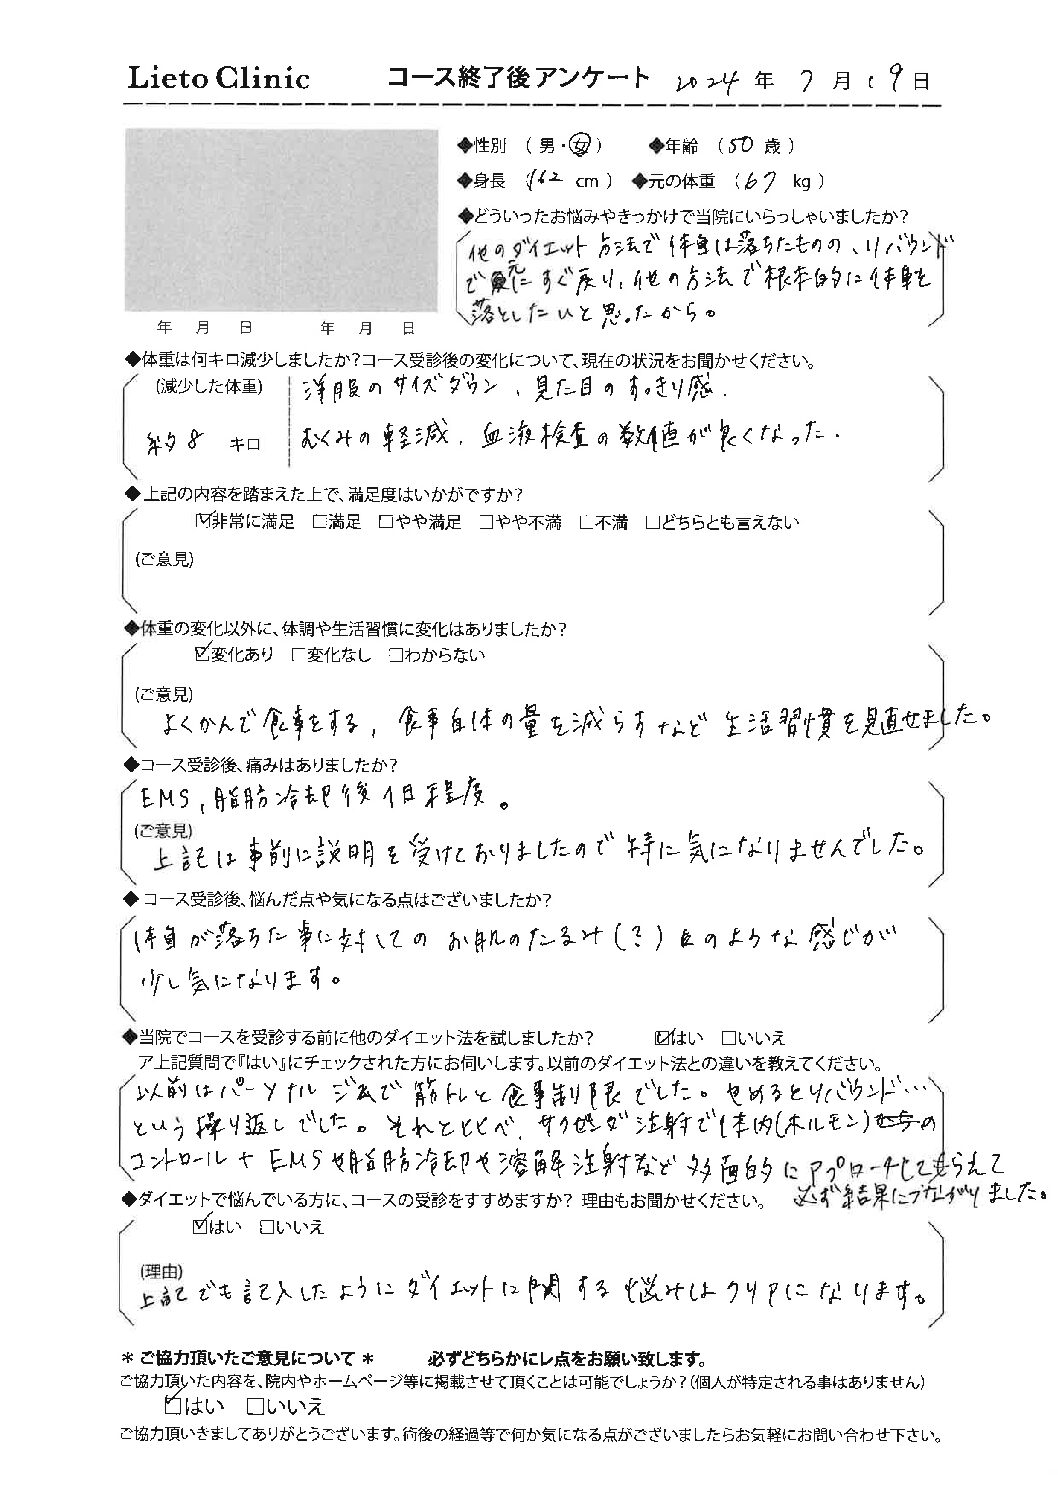 Lieto Clinic コース終了後アンケート 2024年 7月 19日
◆性別 (男・女) ◆年齢 (50歳)
◆身長 162 cm) ◆元の体重 (67 kg)
◆どういったお悩みやきっかけで当院にいらっしゃいましたか?
他のダイエット方法で体重は落ちたものの、リバウンド
で元にすぐ戻り、他の方法で根本的に体重を
落としたいと思ったから。
年 月 日 年 月 日
◆体重は何キロ減少しましたか?コース受診後の変化について、現在の状況をお聞かせください。
(減少した体重) 洋服のサイズダウン、見た目のすっきり感.
約8 キロ むくみの軽減. 血液検査の数値が良くなった.
◆上記の内容を踏まえた上で、満足度はいかがですか?
☑非常に満足 □満足 □やや満足 □やや不満 □不満 □どちらとも言えない
(ご意見)
◆体重の変化以外に、体調や生活習慣に変化はありましたか?
☑変化あり □変化なし □わからない
(ご意見)
よくかんで食事をする, 食事自体の量を減らすなど生活習慣を見直せました。
◆コース受診後、痛みはありましたか?
EMS, 脂肪冷却後1日程度。
(ご意見)
上記は事前に説明を受けておりましたので特に気になりませんでした。
◆コース受診後、悩んだ点や気になる点はございましたか?
体重が落ちた事に対してのお肌のたるみ(?)のような感じが
少し気になります。
◆当院でコースを受診する前に他のダイエット法を試しましたか? ☑はい □いいえ
ア上記質問で『はい』にチェックされた方にお伺いします。以前のダイエット法との違いを教えてください。
以前はパーソナルジムで筋トレと食事制限でした。やめるとリバウンド…
という繰り返しでした。それとくらべ、サクセンダ注射で体内(ホルモン)の
コントロール+EMSや脂肪冷却や溶解注射など多面的にアプローチしてもらえて
必ず結果につながりました。
◆ダイエットで悩んでいる方に、コースの受診をすすめますか? 理由もお聞かせください。
☑はい □いいえ
(理由)
上記でも記入したようにダイエットに関する悩みはクリアになります。
＊ご協力頂いたご意見について＊ 必ずどちらかにレ点をお願い致します。
ご協力頂いた内容を、院内やホームページ等に掲載させて頂くことは可能でしょうか?(個人が特定される事はありません)
☑はい □いいえ
ご協力頂いきましてありがとうございます。術後の経過等で何か気になる点がございましたらお気軽にお問い合わせ下さい。